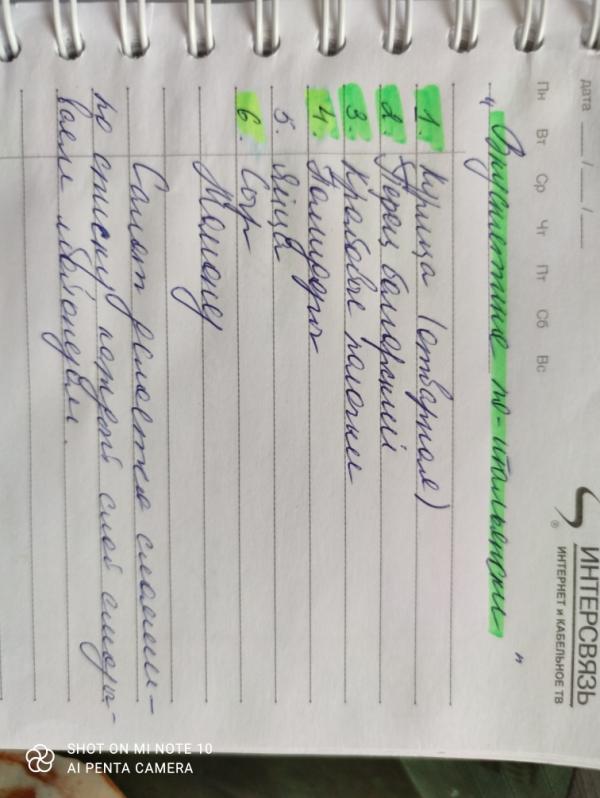 дата ___ /___ /___
Пн Вт Ср Чт Пт Сб Вс
ИНТЕРСВЯЗЬ
®
ИНТЕРНЕТ и КАБЕЛЬНОЕ ТВ
"Вкуснятина по-итальянски"
1. Курица (отварная)
2. Перец болгарский
3. Крабовые палочки
4. Помидоры
5. Яйца
6. Сыр
Майонез
Салат делается слоями -
по списку, каждый слой смазы-
ваем майонезом.
SHOT ON MI NOTE 10
AI PENTA CAMERA